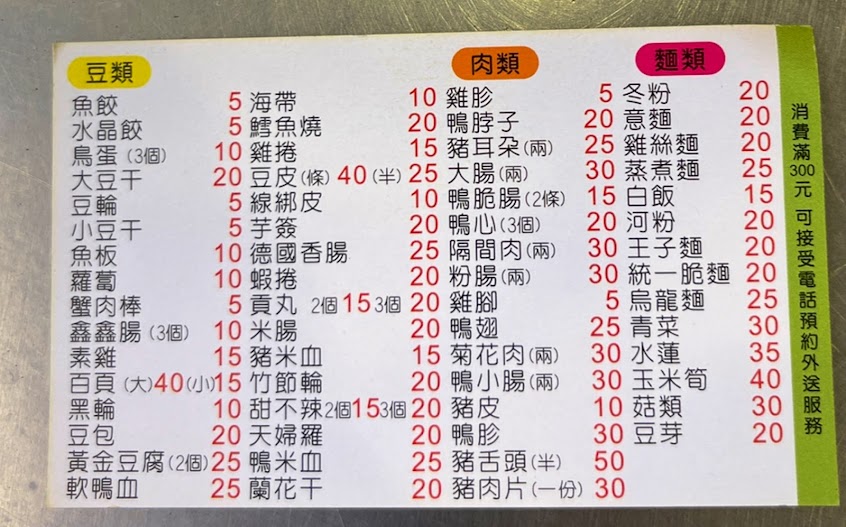 豆類
魚餃 5
水晶餃 5
鳥蛋(3個) 10
大豆干 20
豆輪 5
小豆干 5
魚板 10
蘿蔔 10
蟹肉棒 5
鑫鑫腸(3個) 10
素雞 15
百頁(大)40(小)15
黑輪 10
豆包 20
黃金豆腐(2個)25
軟鴨血 25
海帶 10
鱈魚燒 20
雞捲 15
豆皮(條)40(半)25
線綁皮 10
芋簽 20
德國香腸 25
蝦捲 20
貢丸 2個15 3個20
米腸 20
豬米血 15
竹節輪 20
甜不辣2個15 3個20
天婦羅 20
鴨米血 25
蘭花干 20
肉類
雞胗 5
鴨脖子 20
豬耳朵(兩) 25
大腸(兩) 30
鴨脆腸(2條) 15
鴨心(3個) 20
隔間肉(兩) 30
粉腸(兩) 30
雞腳 5
鴨翅 25
菊花肉(兩) 30
鴨小腸(兩) 30
豬皮 10
鴨胗 30
豬舌頭(半) 50
豬肉片(一份) 30
麵類
冬粉 20
意麵 20
雞絲麵 20
蒸煮麵 25
白飯 15
河粉 20
王子麵 20
統一脆麵 20
烏龍麵 25
青菜 30
水蓮 35
玉米筍 40
菇類 30
豆芽 20
消費滿300元 可接受電話預約外送服務